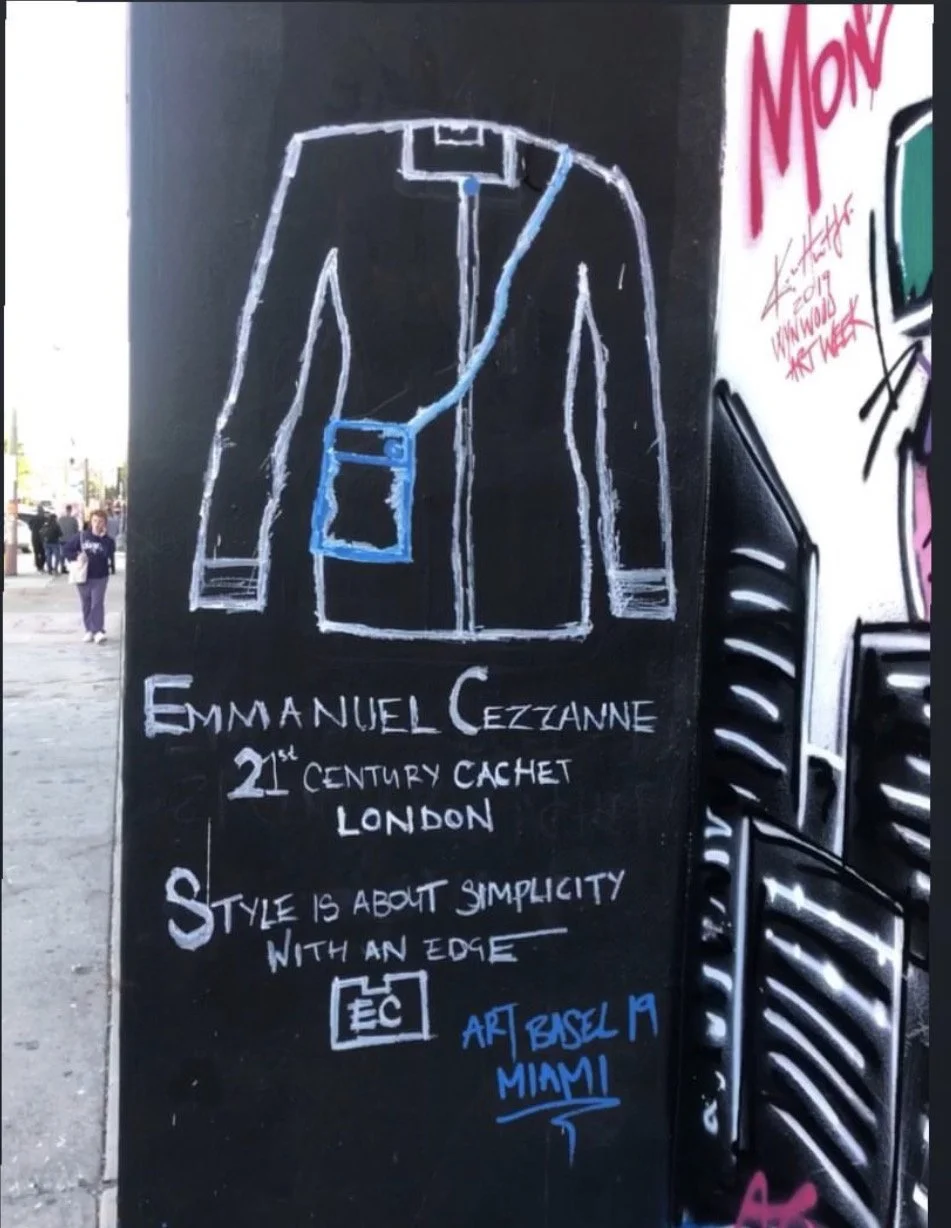 EMMANUEL CEZZANNE
21st CENTURY CACHET
LONDON
STYLE IS ABOUT SIMPLICITY
WITH AN EDGE
EC
ART BASEL 19
MIAMI
MON
2019
WYNWOOD
ART WEEK